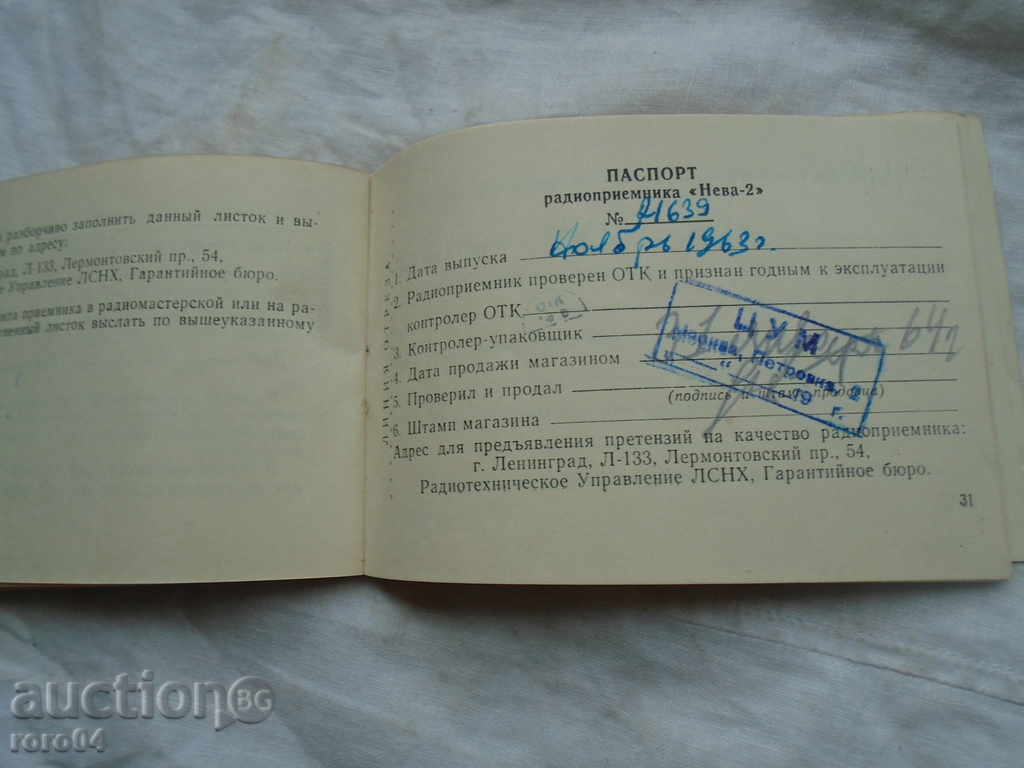 разборчиво заполнить данный листок и вы-
по адресу:
рад, Л-133, Лермонтовский пр., 54,
Управление ЛСНХ, Гарантийное бюро.
приемника в радиомастерской или на ра-
листок выслать по вышеуказанному
ПАСПОРТ
радиоприемника «Нева-2»
№ 21639
1. Дата выпуска Ноябрь 1963 г.
2. Радиоприемник проверен ОТК и признан годным к эксплуатации
контролер ОТК
3. Контролер-упаковщик
4. Дата продажи магазином 64 г
5. Проверил и продал
(подпись и штамп продавца)
6. Штамп магазина
ЦУМ
Москва, Петровка, 2
" 19 г.
Адрес для предъявления претензий на качество радиоприемника:
г. Ленинград, Л-133, Лермонтовский пр., 54,
Радиотехническое Управление ЛСНХ, Гарантийное бюро.
31
auctionBG
roro04